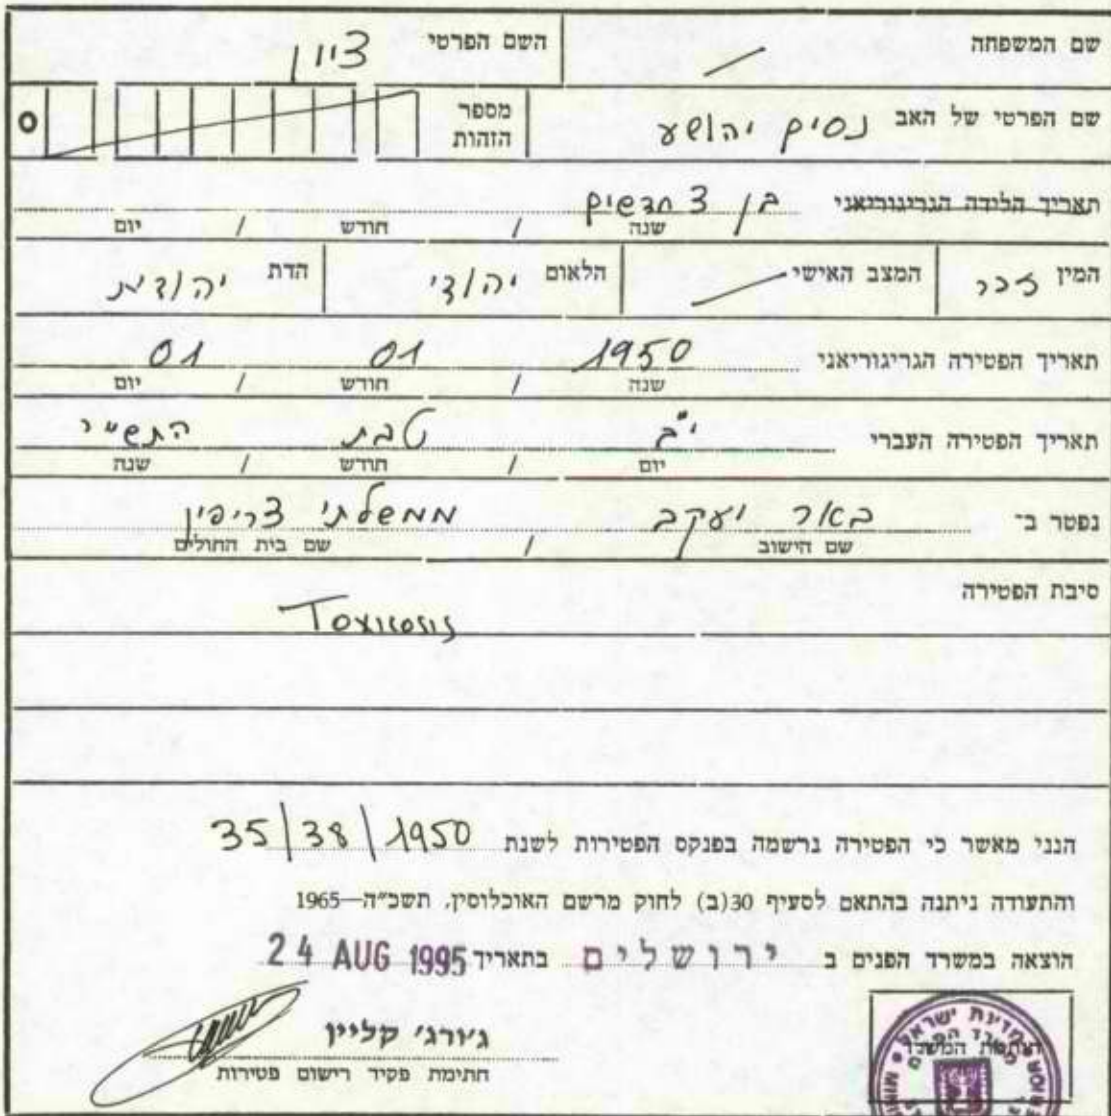 שם המשפחה השם הפרטי ציון
שם הפרטי של האב נסים יהושע מספר הזהות 0
תאריך הלידה הגריגוריאני בן 3 חדשים
שנה / חודש / יום
המין זכר המצב האישי הלאום יהודי הדת יהודית
תאריך הפטירה הגריגוריאני 1950 01 01
שנה / חודש / יום
תאריך הפטירה העברי י"ב טבת התש"י
יום / חודש / שנה
נפטר ב־ באר יעקב ממשלתי צריפין
שם הישוב / שם בית החולים
סיבת הפטירה
Toxicosis
הנני מאשר כי הפטירה נרשמה בפנקס הפטירות לשנת 35/38/1950
והתעודה ניתנה בהתאם לסעיף 30(ב) לחוק מרשם האוכלוסין, תשכ״ה—1965
הוצאה במשרד הפנים ב ירושלים בתאריך 24 AUG 1995
ג׳ורג׳ קליין
חתימת פקיד רישום פטירות
מדינת ישראל
חותמת המשרד